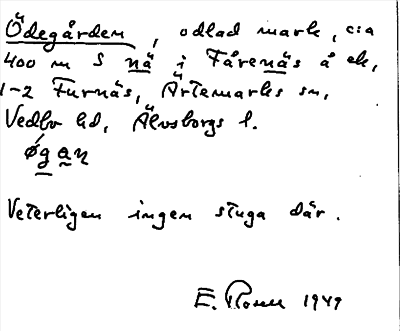 Ödegården, odlad mark, c:a
400 m S nä i Fårenäs å ek,
1-2 Furnäs, Ärtemarks sn,
Vedbo hd, Älvsborgs l.
Veterligen ingen stuga där.
E. 1949